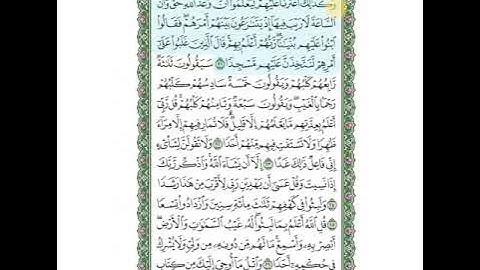 وَكَذَٰلِكَ أَعْثَرْنَا عَلَيْهِمْ لِيَعْلَمُوٓا۟ أَنَّ وَعْدَ ٱللَّهِ حَقٌّ وَأَنَّ
ٱلسَّاعَةَ لَا رَيْبَ فِيهَآ إِذْ يَتَنَٰزَعُونَ بَيْنَهُمْ أَمْرَهُمْ ۖ فَقَالُوا۟
ٱبْنُوا۟ عَلَيْهِم بُنْيَٰنًا ۖ رَّبُّهُمْ أَعْلَمُ بِهِمْ ۚ قَالَ ٱلَّذِينَ غَلَبُوا۟ عَلَىٰٓ
أَمْرِهِمْ لَنَتَّخِذَنَّ عَلَيْهِم مَّسْجِدًا ٢١ سَيَقُولُونَ ثَلَٰثَةٌ
رَّابِعُهُمْ كَلْبُهُمْ وَيَقُولُونَ خَمْسَةٌ سَادِسُهُمْ كَلْبُهُمْ
رَجْمًۢا بِٱلْغَيْبِ ۖ وَيَقُولُونَ سَبْعَةٌ وَثَامِنُهُمْ كَلْبُهُمْ ۚ قُل رَّبِّىٓ
أَعْلَمُ بِعِدَّتِهِم مَّا يَعْلَمُهُمْ إِلَّا قَلِيلٌ ۗ فَلَا تُمَارِ فِيهِمْ إِلَّا مِرَآءً
ظَٰهِرًا وَلَا تَسْتَفْتِ فِيهِم مِّنْهُمْ أَحَدًا ٢٢ وَلَا تَقُولَنَّ لِشَا۟ىْءٍ
إِنِّى فَاعِلٌ ذَٰلِكَ غَدًا ٢٣ إِلَّآ أَن يَشَآءَ ٱللَّهُ ۚ وَٱذْكُر رَّبَّكَ
إِذَا نَسِيتَ وَقُلْ عَسَىٰٓ أَن يَهْدِيَنِ رَبِّى لِأَقْرَبَ مِنْ هَٰذَا رَشَدًا
٢٤ وَلَبِثُوا۟ فِى كَهْفِهِمْ ثَلَٰثَ مِا۟ئَةٍ سِنِينَ وَٱزْدَادُوا۟ تِسْعًا
٢٥ قُلِ ٱللَّهُ أَعْلَمُ بِمَا لَبِثُوا۟ ۖ لَهُۥ غَيْبُ ٱلسَّمَٰوَٰتِ وَٱلْأَرْضِ ۖ
أَبْصِرْ بِهِۦ وَأَسْمِعْ ۚ مَا لَهُم مِّن دُونِهِۦ مِن وَلِىٍّ وَلَا يُشْرِكُ
فِى حُكْمِهِۦٓ أَحَدًا ٢٦ وَٱتْلُ مَآ أُوحِىَ إِلَيْكَ مِن كِتَابِ